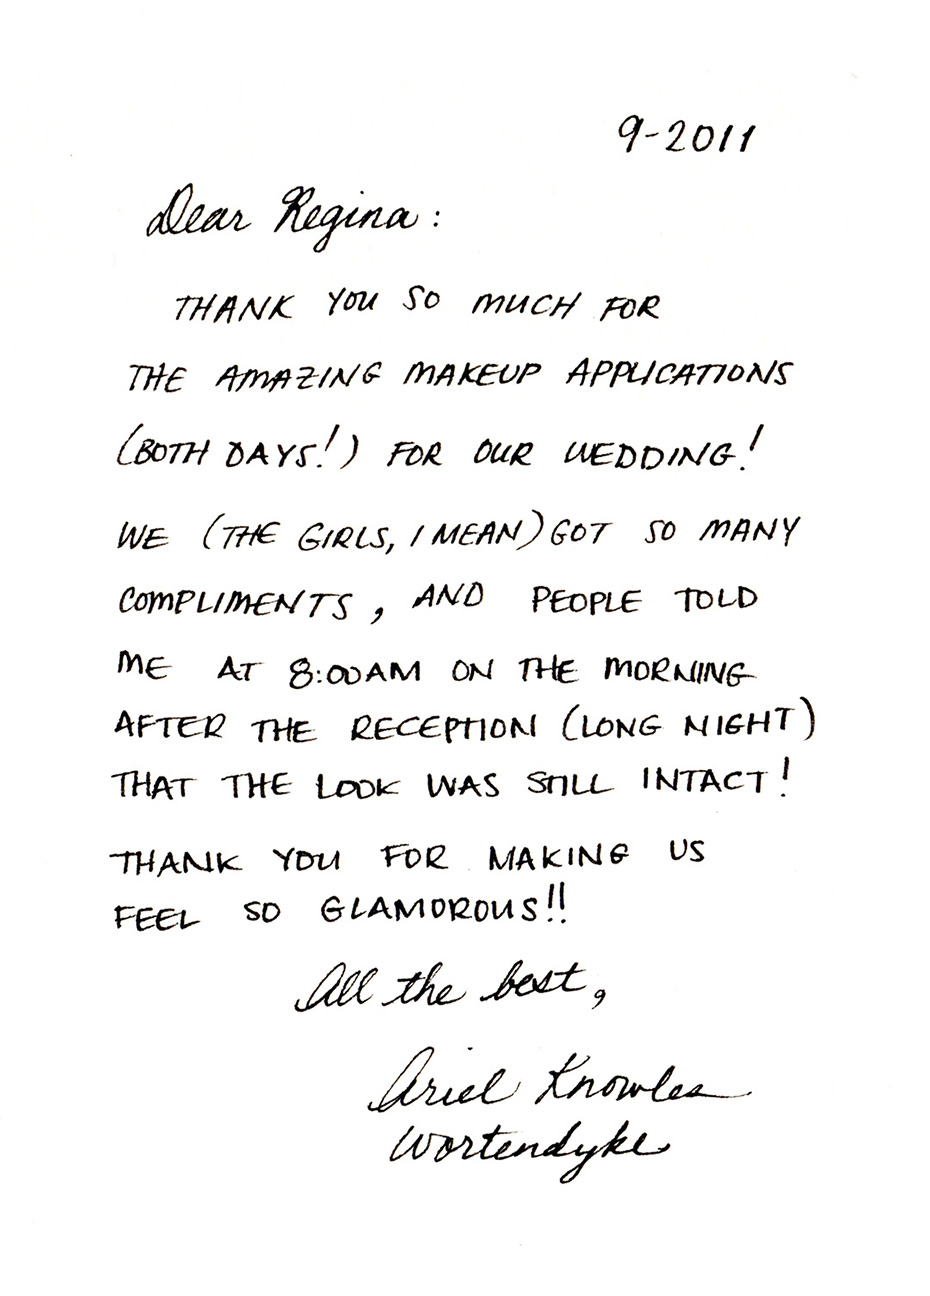 9-2011
Dear Regina:
THANK YOU SO MUCH FOR
THE AMAZING MAKEUP APPLICATIONS
(BOTH DAYS!) FOR OUR WEDDING!
WE (THE GIRLS, I MEAN) GOT SO MANY
COMPLIMENTS, AND PEOPLE TOLD
ME AT 8:00AM ON THE MORNING
AFTER THE RECEPTION (LONG NIGHT)
THAT THE LOOK WAS STILL INTACT!
THANK YOU FOR MAKING US
FEEL SO GLAMOROUS!!
All the best,
Ariel Knowles
Wortendyke